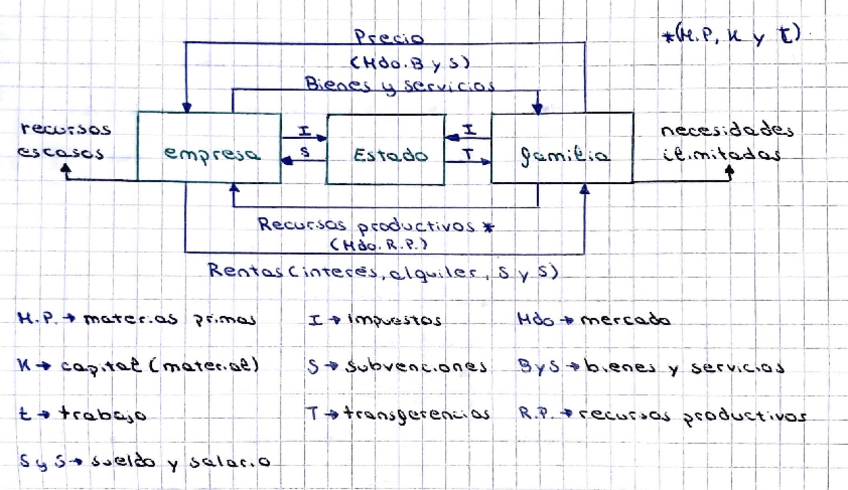 Precio
*(M.P, K y t)
(Mdo. B y S)
Bienes y servicios
recursos
escasos
empresa
I
S
Estado
I
T
familia
necesidades
ilimitadas
Recursos productivos *
(Mdo. R.P.)
Rentas (interés, alquiler, S y S)
M.P. → materias primas
I → Impuestos
Mdo → mercado
K → capital (material)
S → subvenciones
B y S → bienes y servicios
t → trabajo
T → transferencias
R.P. → recursos productivos
S y S → sueldo y salario